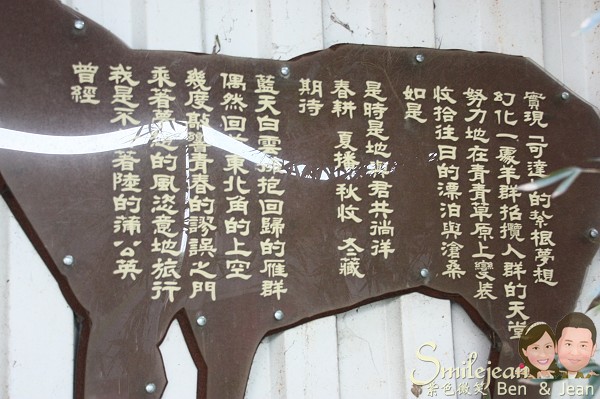 曾經
我是不著陸的蒲公英
乘著夢想的風恣意地旅行
幾度敲響青春的謬誤之門
偶然回東北角的上空
藍天白雲擁抱回歸的雁群
期待
春耕 夏播 秋收 冬藏
是時是地與君共徜徉
如是
收拾往日的漂泊與滄桑
努力地在青青草原上變裝
幻化一處羊群招攬人群的天堂
實現「可達」的紮根夢想
Smilejean
紫色微笑 Ben & Jean